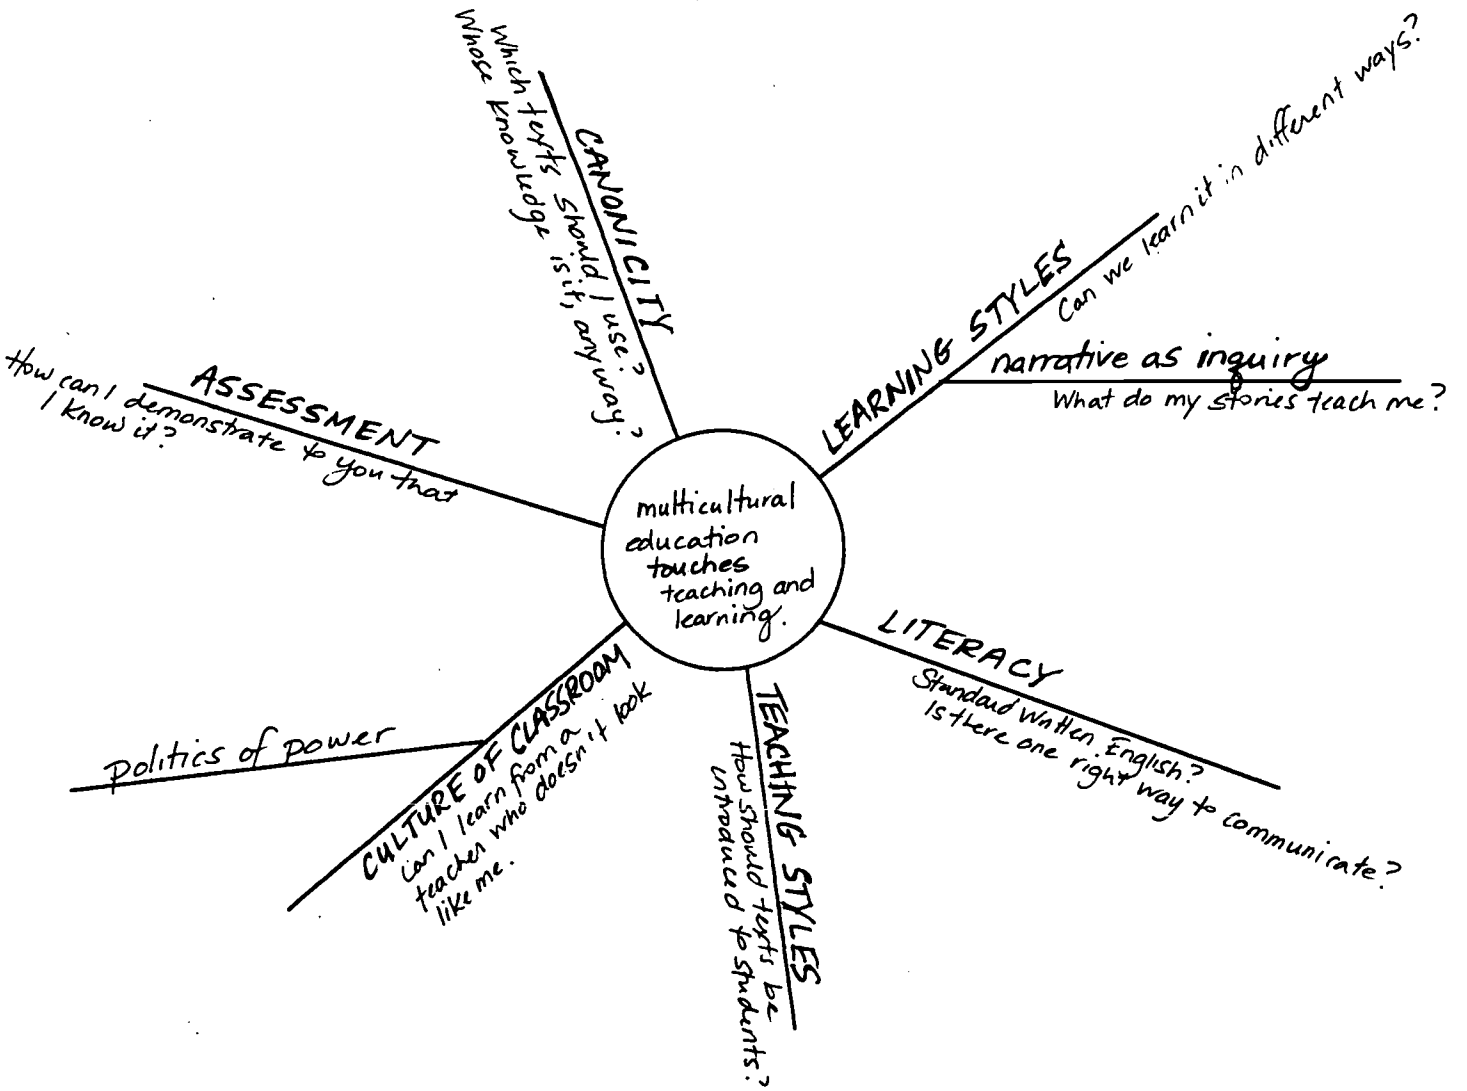 multicultural
education
touches
teaching and
learning.
CANONICITY
Which texts should I use?
Whose knowledge is it, anyway?
LEARNING STYLES
Can we learn it in different ways?
narrative as inquiry
What do my stories teach me?
LITERACY
Standard Written English?
Is there one right way to communicate?
TEACHING STYLES
How should texts be
introduced to students?
CULTURE OF CLASSROOM
Can I learn from a
teacher who doesn't look
like me.
politics of power
ASSESSMENT
How can I demonstrate to you that
I know it?